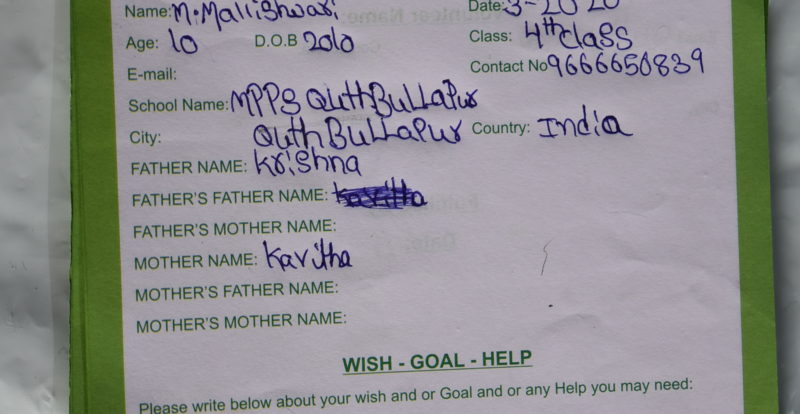 Name: M. Mallishwari Date: 3-2020
Age: 10 D.O.B 2010 Class: 4th class
E-mail: Contact No 9666650839
School Name: MPPS QuthBuLLaPur
City: QuthBuLLaPur Country: India
FATHER NAME: Krishna
FATHER'S FATHER NAME:
FATHER'S MOTHER NAME:
MOTHER NAME: Kavitha
MOTHER'S FATHER NAME:
MOTHER'S MOTHER NAME:
WISH - GOAL - HELP
Please write below about your wish and or Goal and or any Help you may need: